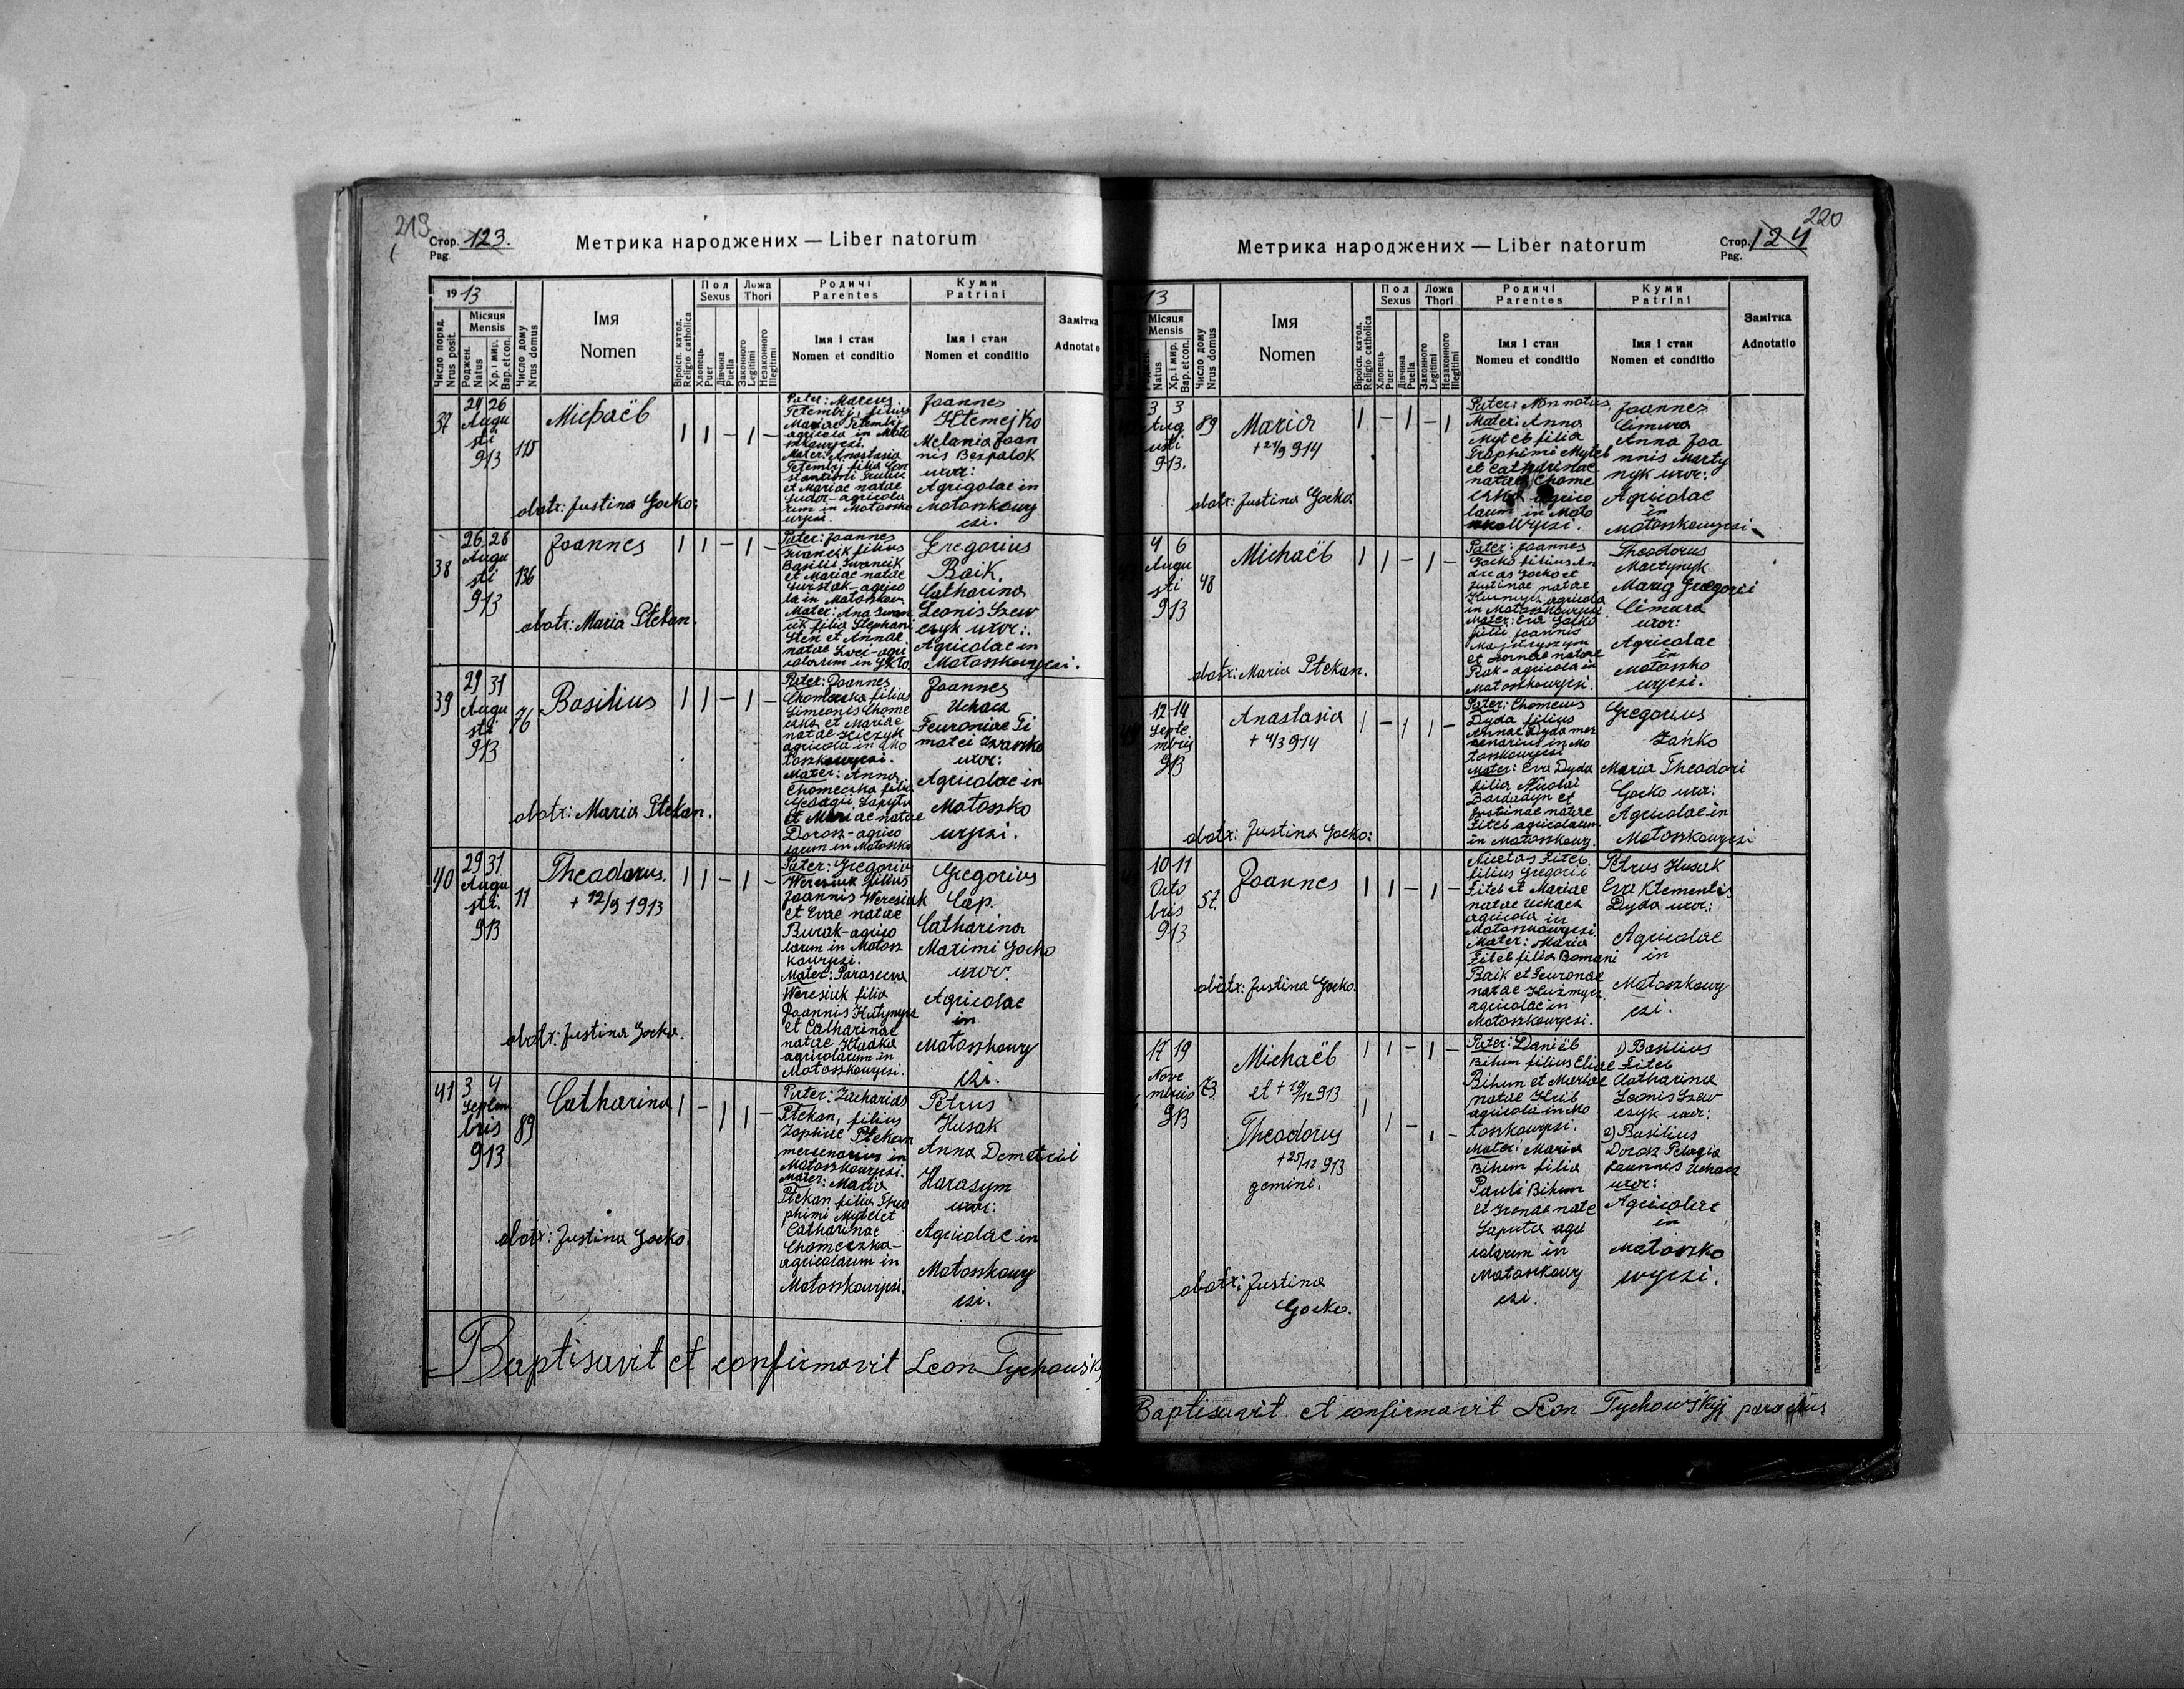 213
Стор. 123.
Pag
Метрика народжених — Liber natorum
1913
Число поряд.
Nrus posit.
Місяця
Mensis
Роджен.
Natus
Хр. і мир.
Bap. et con.
Число дому
Nrus domus
Імя
Nomen
Віроісп. катол.
Religio catholica
Пол
Sexus
Хлопець
Puer
Дівчина
Puella
Ложа
Thori
Законного
Legitimi
Незаконного
Illegitimi
Родичі
Parentes
Імя і стан
Nomen et conditio
Куми
Patrini
Імя і стан
Nomen et conditio
Замітка
Adnotatio
37
24 26
Augu
sti
913
115
Michaël
1 1 – 1 –
obstr: Justina Gocko:
Pater: Marcus
filius
Mariae
agricola in Moto
Mater: Anastasia
filia Con
et Mariae natae
agricola
rum in Motoszko
Joannes
Klemejko
Melania Joan
nis Bezpalok
uxor:
Agrigolae in
Motoszkowy
czi.
38
26 28
Augu
sti
913
136
Joannes
1 1 – 1 –
obstr: Maria Ptekan.
Pater: Joannes
Iwancik filius
Basilii Iwancik
et Mariae natae
agrico
la in Motoszkow
Mater: Ana Iwan
cik filia Stephani
Sten et Annae
natae agri
colarum in
Gregorius
Baik.
Catharina
Leonis Szew
czyk uxor:
Agricolae in
Motoszkowyczi.
39
29 31
Augu
sti
913
76
Basilius
1 1 – 1 –
obstr: Maria Ptekan.
Pater: Joannes
Chomeczka filius
Simeonis Chome
czka et Mariae
natae Kiczyk
agricola in Mo
toszkowyczi.
Mater: Anna,
Chomeczka filia
Georgii Saputa
et Mariae natae
Dorosz - agrico
larum in Motoszko
Joannes
Uchacz
Feuroniae Ti
motei Iwaszko
uxor:
Agricolae in
Motoszko
wyczi.
40
29 31
Augu
sti.
913
11
Theodorus.
+ 12/9 1913
1 1 – 1 –
obstr: Justina Gocko.
Pater: Gregorius
Weresiuk filius
Joannis Weresiuk
et Evae natae
Burak - agrico
larum in Motosz
kowyczi.
Mater: Parasceva
Weresiuk filia
Joannis Kutynycz
et Catharinae
natae Kladka
agricolarum in
Motoszkowyczi.
Gregorius
Cap.
Catharina
Maximi Gocko
uxor
Agricolae
in
Motoszkowy
czi.
41
3 4
Septem
bris
913
89
Catharina
1 – 1 1 –
obstr: Justina Gocko.
Pater: Zacharias
Ptekan, filius
Zophiae Ptekan
mercenarius in
Motoszkowyczi.
Mater: Maria
Ptekan filia Tro
phimi Mytel et
Catharinae
Chomeczka -
agricolarum in
Motoszkowyczi.
Petrus
Husak
Anna Demetrii
Harasym
uxor:
Agricolae in
Motoszkowy
czi.
Baptisavit et confirmavit Leon Tychowski
220
Стор. 124
Pag.
Метрика народжених — Liber natorum
13
Місяця
Mensis
Natus
Хр. і мир.
Bap. et con.
Число дому
Nrus domus
Імя
Nomen
Віроісп. катол.
Religio catholica
Пол
Sexus
Хлопець
Puer
Дівчина
Puella
Ложа
Thori
Законного
Legitimi
Незаконного
Illegitimi
Родичі
Parentes
Імя і стан
Nomeu et conditio
Куми
Patrini
Імя і стан
Nomen et conditio
Замітка
Adnotatio
3 3
Aug
usti
913.
89
Maria
+ 21/9 914
1 – 1 – 1
obstr: Justina Gocko
Pater: Non natus
Mater: Anna
Mytel filia
Trophimi Mytel
et Catharinae
natae Chome
czka - agrico
larum in Moto
szkowyczi.
Joannes
Cimura
Anna Joa
nnis Marty
nyk uxor:
Agricolae
in
Motoszkowyczi.
4 6
Augu
sti
913
48
Michaël
1 1 – 1 –
obstr: Maria Ptekan.
Pater: Joannes
Gocko filius An
dreas Gocko et
Justinae natae
agricola
in Motoszkowyczi
Mater: Eva Gocko
filii Joannis
et Annae natae
agricola in
Motoszkowyczi.
Theodorus
Martynyk
Maria Gregorii
Cimura
uxor:
Agricolae
in
Motoszko
wyczi.
12 14
Septe
mbris
913
Anastasia
+ 4/3 914
1 – 1 1 –
obstr: Justina Gocko:
Pater: Chomeus
Dyda filius
Annae Dyda mer
cenarius in Mo
toszkowyczi
Mater: Eva Dyda
filia Nicolai
Bardadyn et
Justinae natae
Fitel agricolarum
in Motoszkowy.
Gregorius
Zańko
Maria Theodori
Gocko uxor:
Agricolae in
Motoszkowyczi
10 11
Octo
bris
913
57.
Joannes
1 1 – 1 –
obstr: Justina Gocko.
Nicetas Fitel.
filius Gregorii
Fitel et Mariae
natae Uchacz
agricola in
Motoszkowyczi.
Mater: Maria
Fitel filia Romani
Baik et Feuronae
natae Kuźmycz
agricolae in
Motoszkowyczi.
Petrus Husak
Eva Klementis
Dyda uxor:
Agricolae
in
Motoszkowy
czi.
17 19
Nove
mbris
913
73.
Michaël
et + 19/12 913
Theodorus
+ 25/12 913
gemini.
1 1 – 1 –
1 1 – 1 –
obstr: Justina
Gocko.
Pater: Daniël
Bihun filius Eliae
Bihun et Mariae
natae Hrib
agricola in Mo
toszkowyczi.
Mater: Maria
Bihun filia
Pauli Bihun
et Irenae nate
Saputa agri
colarum in
Motoszkowy
czi.
1) Basilius
Fitel
Catharina
Leonis Szew
czyk uxor:
2) Basilius
Dorosz Pelagia
Joannes Uchacz
uxor:
Agricolae
in
Motoszko
wyczi.
Baptisavit et confirmavit Leon Tychowśkyj parochus